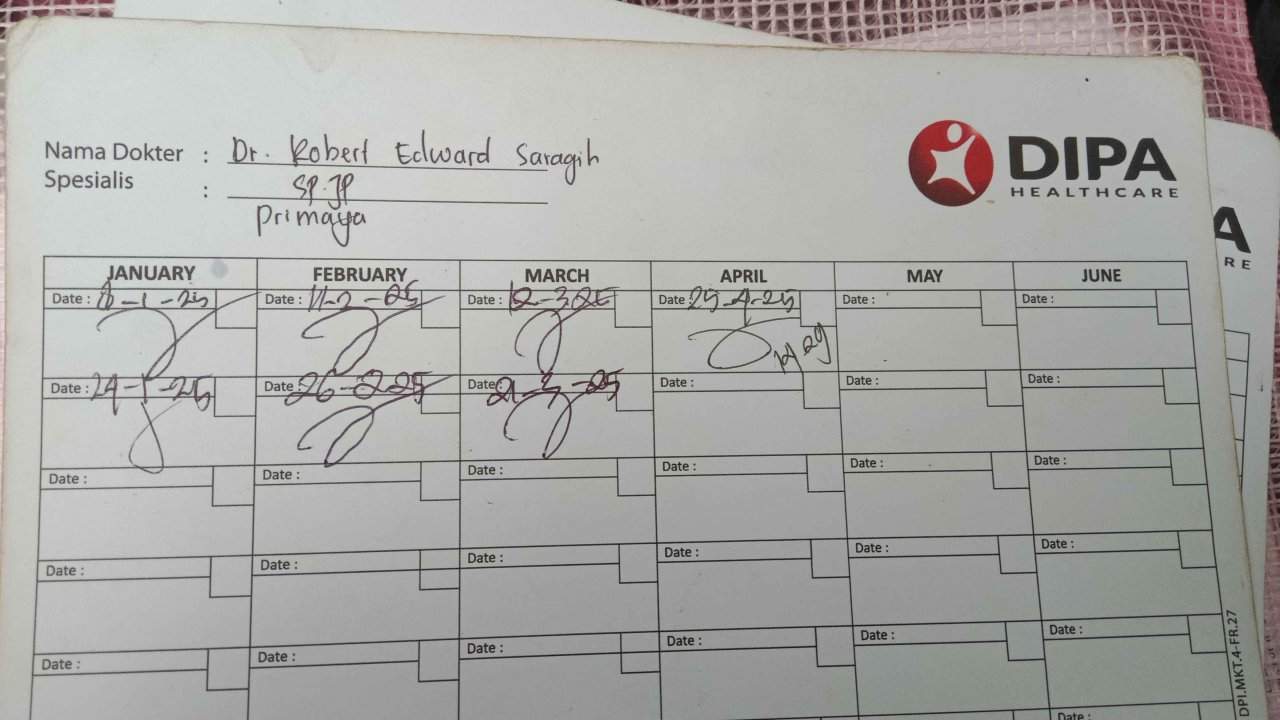 Nama Dokter : Dr. Robert Edward Saragih
Spesialis : SP.JP
Primaya
DIPA
HEALTHCARE
JANUARY FEBRUARY MARCH APRIL MAY JUNE
Date : 8-1-25 Date : 11-2-25 Date : 12-3-25 Date : 25-4-25 Date : Date :
Date : 24-1-25 Date : 26-2-25 Date : 21-3-25 Date : Date : Date :
Date : Date : Date : Date : Date : Date :
Date : Date : Date : Date : Date : Date :
Date : Date : Date : Date : Date : Date :
Date :
DPI.MKT.4-FR.27
A
RE